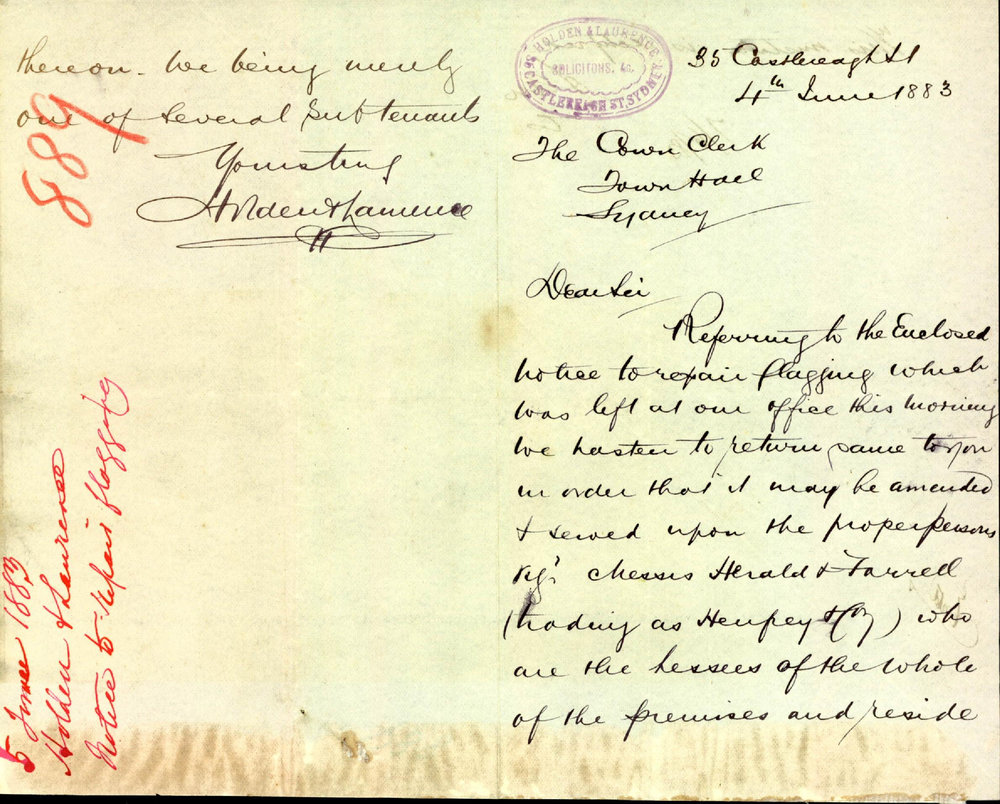 HOLDEN & LAURENCE
SOLICITORS, &c.
35 CASTLEREAGH ST, SYDNEY
35 Castlereagh St
4th June 1883
The Town Clerk
Town Hall
Sydney
Dear Sir
Referring to the Enclosed
notice to repair flagging which
was left at our office this morning
We hasten to return same to you
in order that it may be amended
& served upon the proper persons
viz. Messrs Herald & Farrell
(trading as Henfrey & Co) who
are the Lessees of the whole
of the premises and reside
thereon. We being merely
one of several Subtenants
Yours truly
Holden & Laurence
889
5 June 1883
Holden & Laurence
Notice to repair flagging